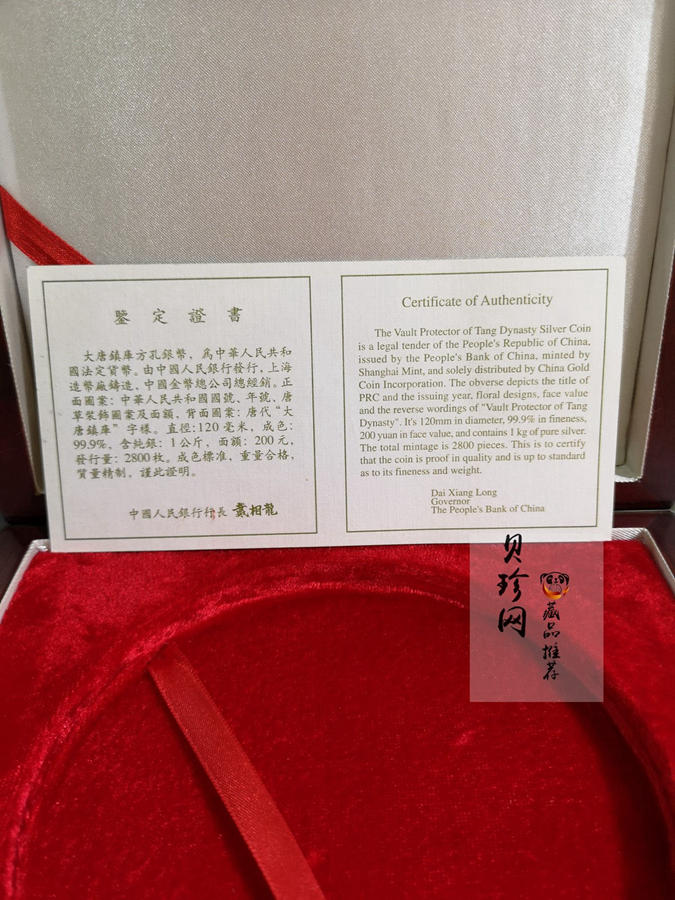 鑒定證書
大唐鎮庫方孔銀幣，為中華人民共和
國法定貨幣。由中國人民銀行發行，上海
造幣廠鑄造，中國金幣總公司總經銷。正
面圖案：中華人民共和國國號、年號、唐
草裝飾圖案及面額，背面圖案：唐代“大
唐鎮庫”字樣。直徑：120毫米，成色：
99.9%，含純銀：1公斤，面額：200元，
發行量：2800枚。成色標准，重量合格，
質量精制，謹此證明。
中國人民銀行行長 戴相龍
Certificate of Authenticity
The Vault Protector of Tang Dynasty Silver Coin
is a legal tender of the People's Republic of China,
issued by the People's Bank of China, minted by
Shanghai Mint, and solely distributed by China Gold
Coin Incorporation. The obverse depicts the title of
PRC and the issuing year, floral designs, face value
and the reverse wordings of "Vault Protector of Tang
Dynasty". It's 120mm in diameter, 99.9% in fineness,
200 yuan in face value, and contains 1 kg of pure silver.
The total mintage is 2800 pieces. This is to certify
that the coin is proof in quality and is up to standard
as to its fineness and weight.
Dai Xiang Long
Governor
The People's Bank of China
贝珍网
藏品推荐